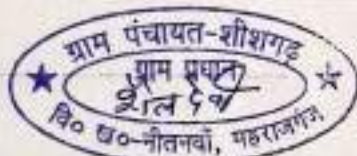 ग्राम पंचायत-शीशगढ़
ग्राम प्रधान
वि० ख०-नौतनवाँ, महराजगंज